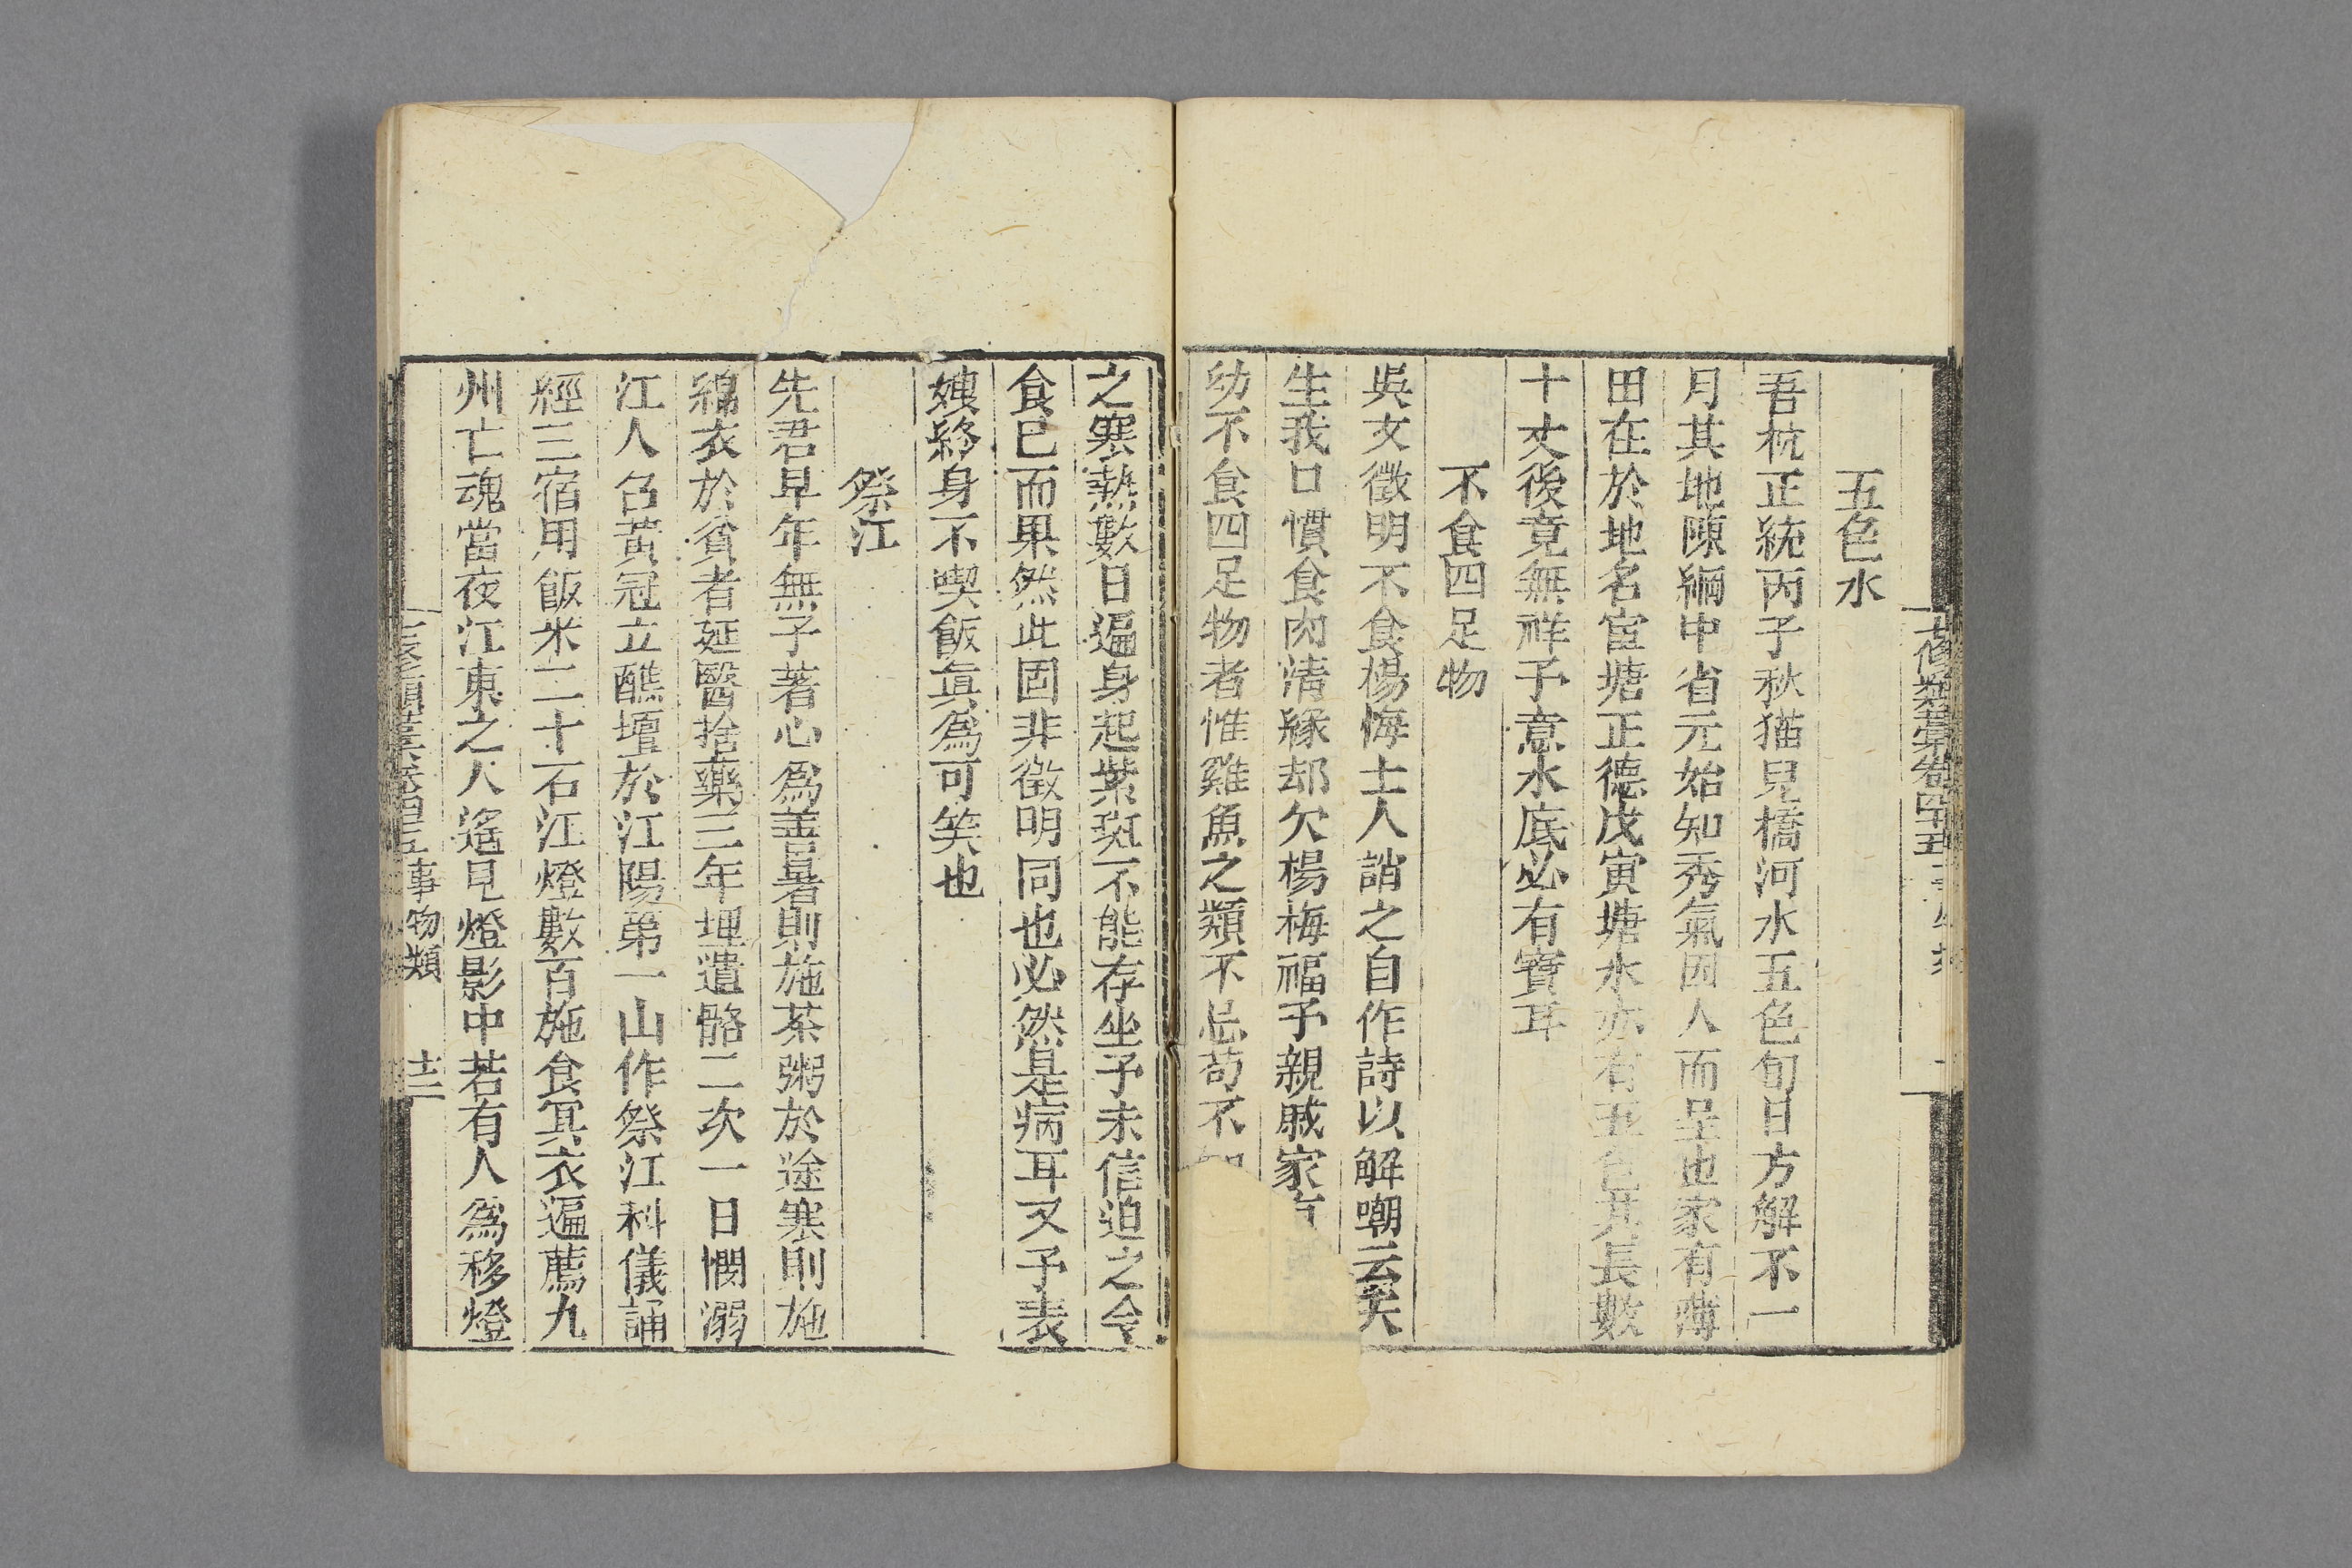 五色水
吾杭正統丙子秋猫兒橋河水五色旬日方解不一
月其地陳綱中省元始知秀氣因人而呈也家有薄
田在於地名宦塘正德戊寅塘水亦有五色其長數
十丈後竟無祥予意水底必有寶耳
不食四足物
吳文徵明不食楊梅士人誚之自作詩以解嘲云天
生我口慣食肉清緣却欠楊梅福予親戚家
幼不食四足物者惟雞魚之類不忌苟不
之寒熱數日遍身起紫斑不能存坐予未信迫之令
食已而果然此固非徵明同也必然是病耳又予表
姨終身不喫飯眞為可笑也
祭江
先君早年無子著心為善暑則施茶粥於途寒則施
綿衣於貧者延醫捨藥三年埋遺骼二次一日憫溺
江人召黃冠立醮壇於江陽第一山作祭江科儀誦
經三宿用飯米二十石江燈數百施食冥衣遍薦九
州亡魂當夜江東之人遙見燈影中若有人為移燈
七修類藁卷四十五 事物類 十三